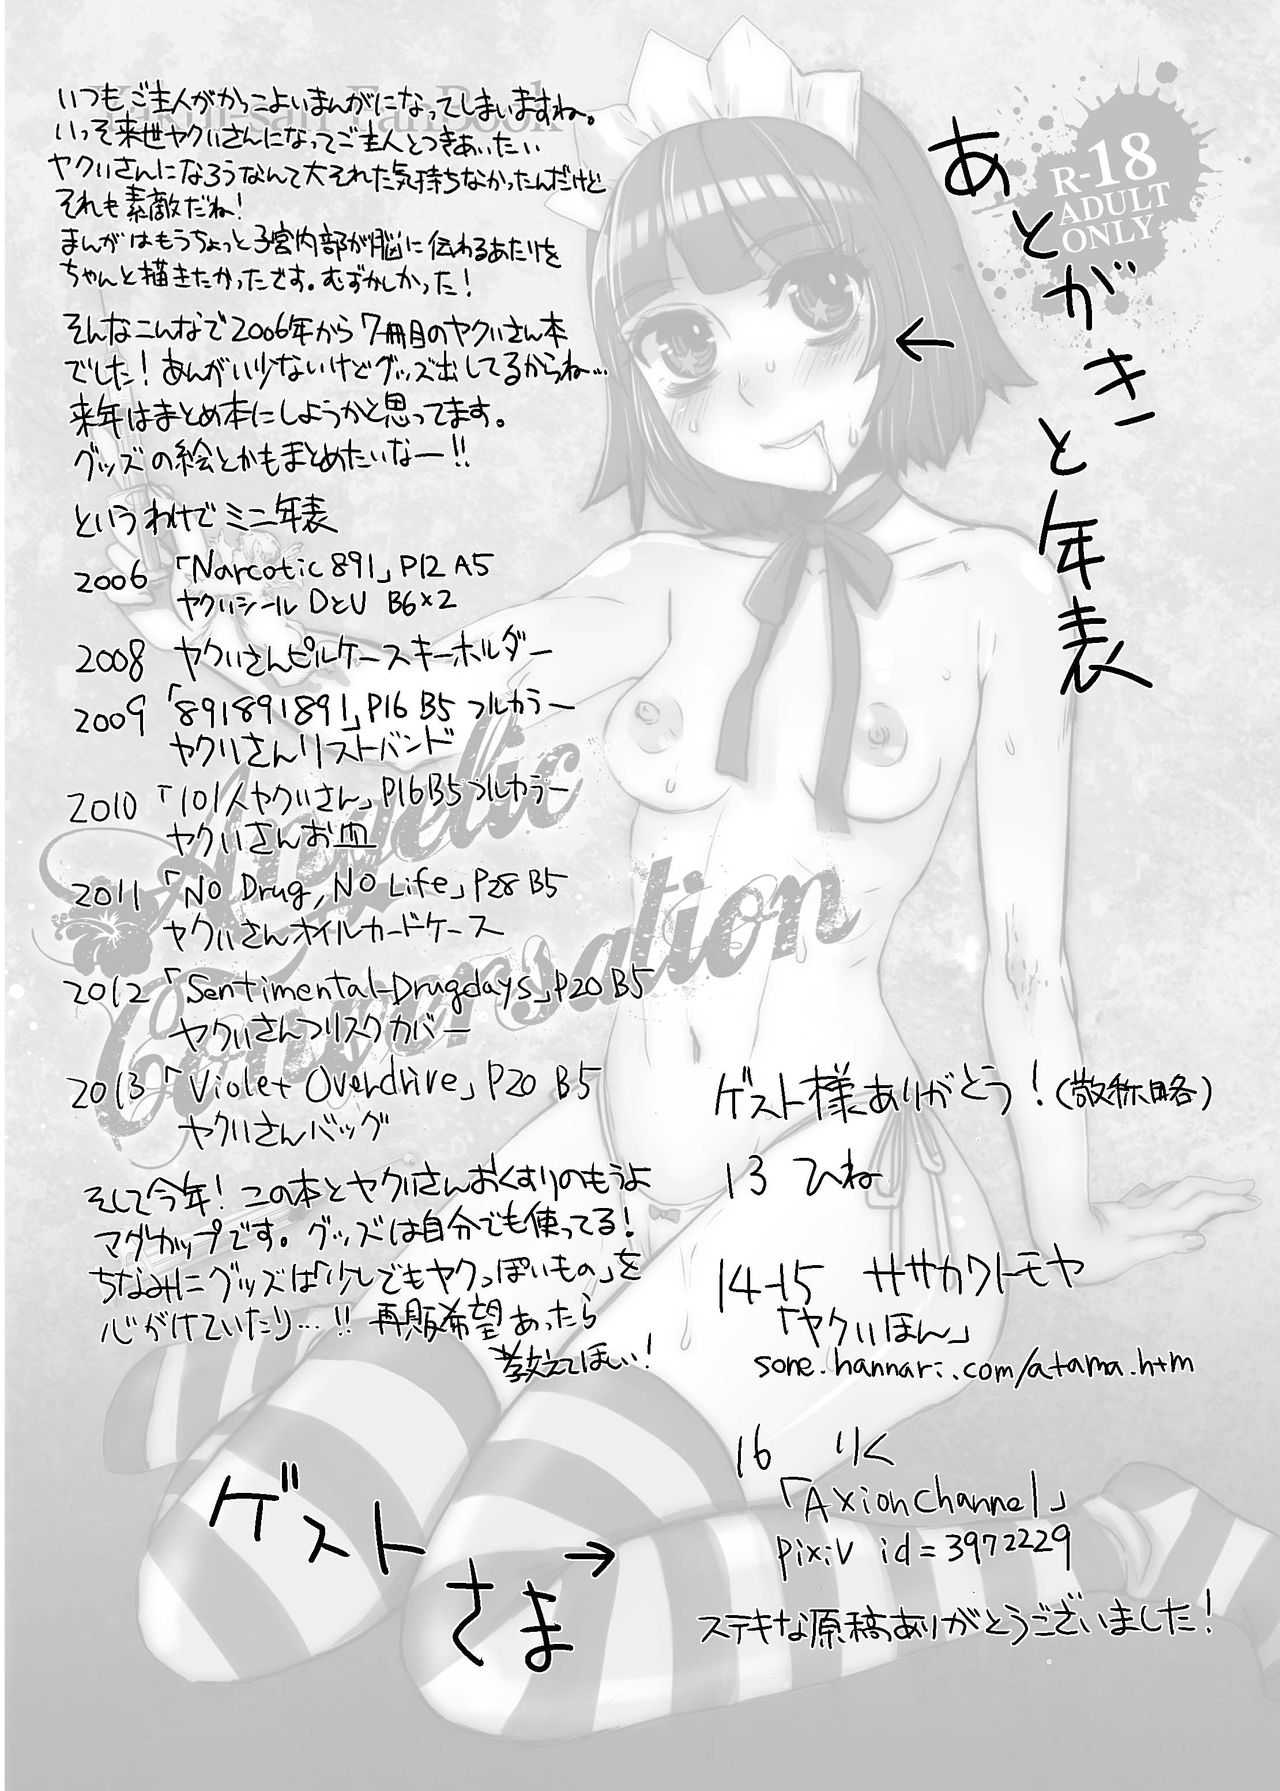 あとがきと年表
R-18
ADULT
ONLY
いつもご主人がかっこよいまんがになってしまいますね。
いっそ来世ヤクいさんになってご主人とつきあいたい
ヤクいさんになろうなんて大それた気持ちなかったんだけど
それも素敵だね!
まんがはもうちょっと子宮内部が脳に伝わるあたりを
ちゃんと描きたかったです。むずかしかった!
そんなこんなで2006年から7冊目のヤクいさん本
でした!あんがい少ないけどグッズ出してるからね…
来年はまとめ本にしようかと思ってます。
グッズの絵とかもまとめたいなー!!
というわけでミニ年表
2006 「Narcotic 891」P12 A5
ヤクいシール DとU B6×2
2008 ヤクいさんピルケースキーホルダー
2009 「891891891」P16 B5 フルカラー
ヤクいさんリストバンド
2010 「101人ヤクいさん」P16 B5 フルカラー
ヤクいさんお皿
2011 「No Drug, No Life」P28 B5
ヤクいさんオイルカードケース
2012 「Sentimental-Drugdays」P20 B5
ヤクいさんフリスクカバー
2013 「Violet Overdrive」P20 B5
ヤクいさんバッグ
そして今年!この本とヤクいさんおくすりのもうよ
マグカップです。グッズは自分でも使ってる!
ちなみにグッズは「少しでもヤクっぽいもの」を
心がけていたり…!! 再販希望あったら
教えてほしい!
Conversation
ゲストさま →
ゲスト様ありがとう!(敬称略)
13 ひね
14-15 ササカワトモヤ
「ヤクいほん」
sone.hannari.com/atama.htm
16 りく
「AXionChannel」
pixiv id=3972229
ステキな原稿ありがとうございました!